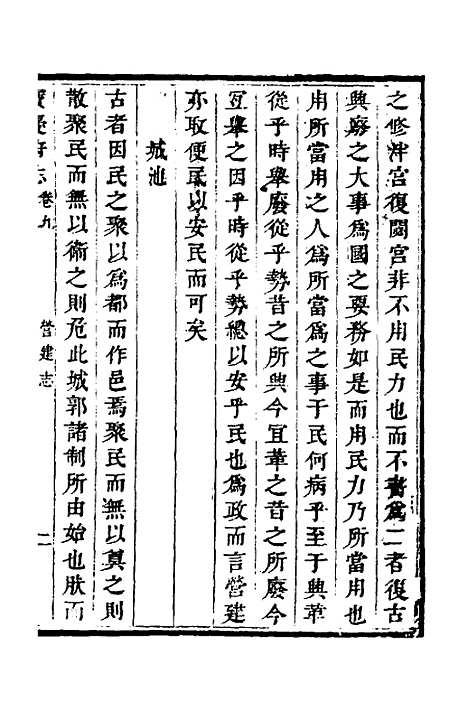 之修泮宮復閟宮非不用民力也而不書為二者復古
興廢之大事為國之要務如是而用民力乃所當用也
用所當用之人為所當為之事于民何病乎至于興革
從乎時舉廢從乎勢昔之所興今宜革之昔之所廢今
宜舉之因乎時從乎勢總以安乎民也為政而言營建
亦取便民以安民而可矣
城池
古者因民之聚以為都而作邑焉聚民而無以奠之則
散聚民而無以衛之則危此城郭諸制所由始也狀而
府志卷九
營建志
二